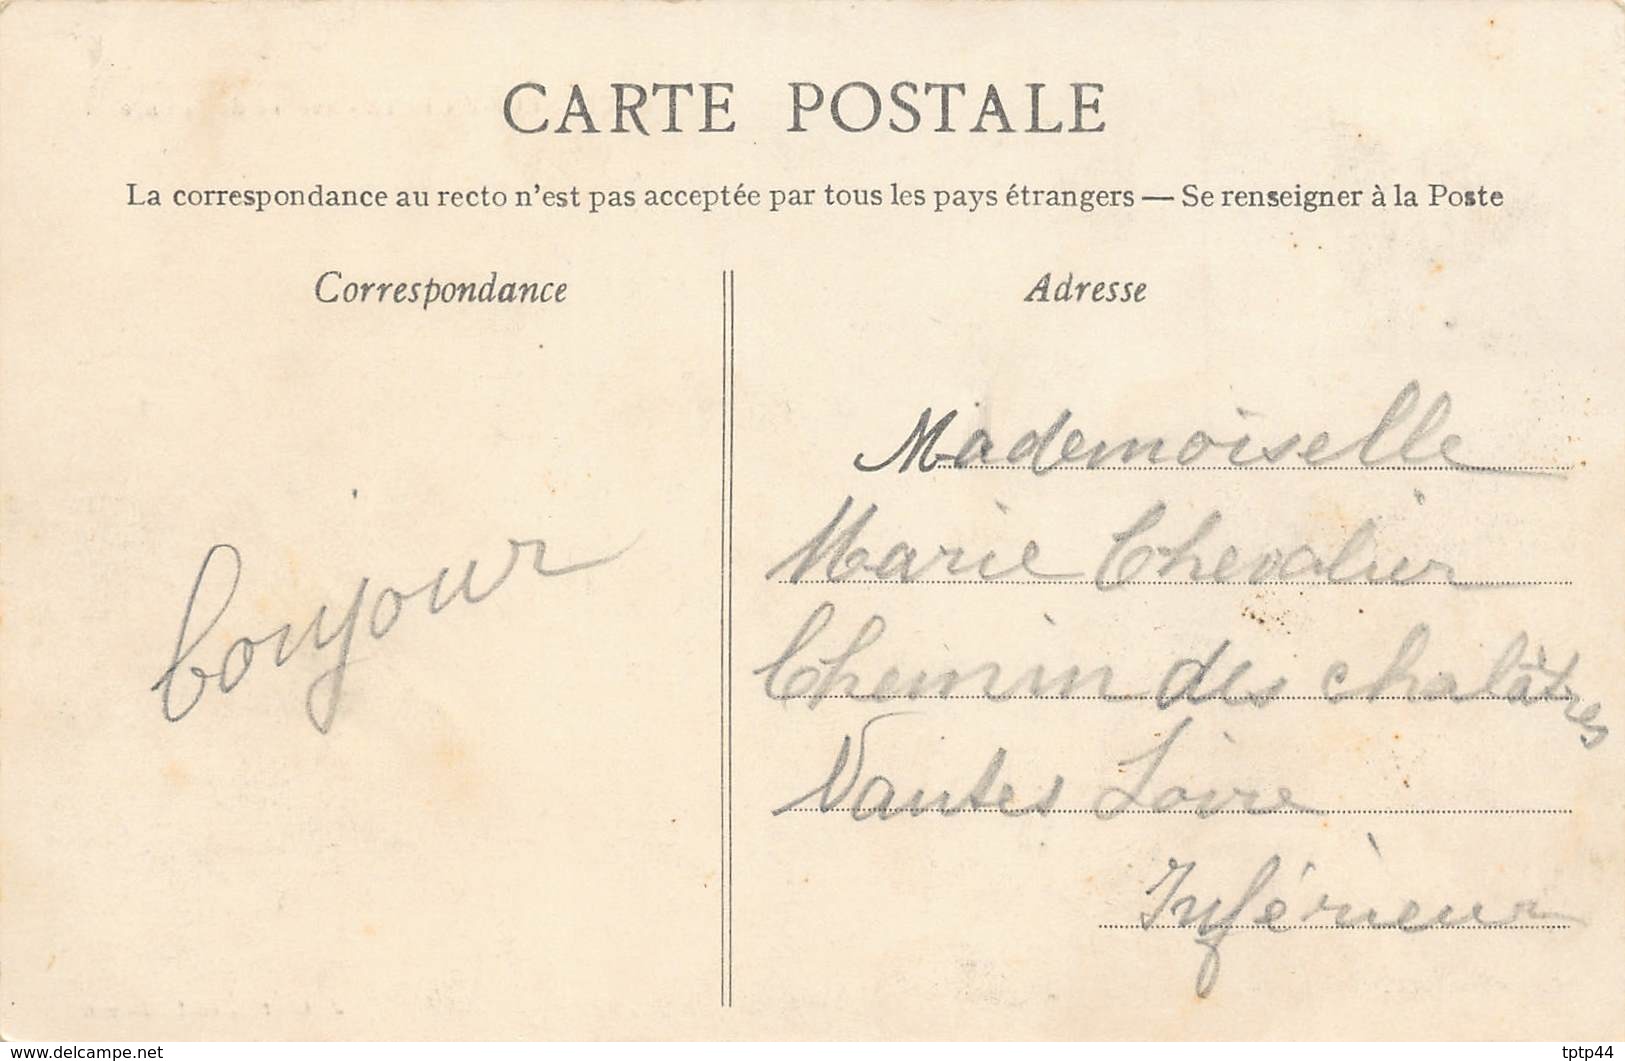 CARTE POSTALE
La correspondance au recto n'est pas acceptée par tous les pays étrangers — Se renseigner à la Poste
Correspondance
bonjour
Adresse
Mademoiselle
Marie Chevalier
Chemin des chalâtres
Nantes Loire
Inférieur
www.delcampe.net
tptp44